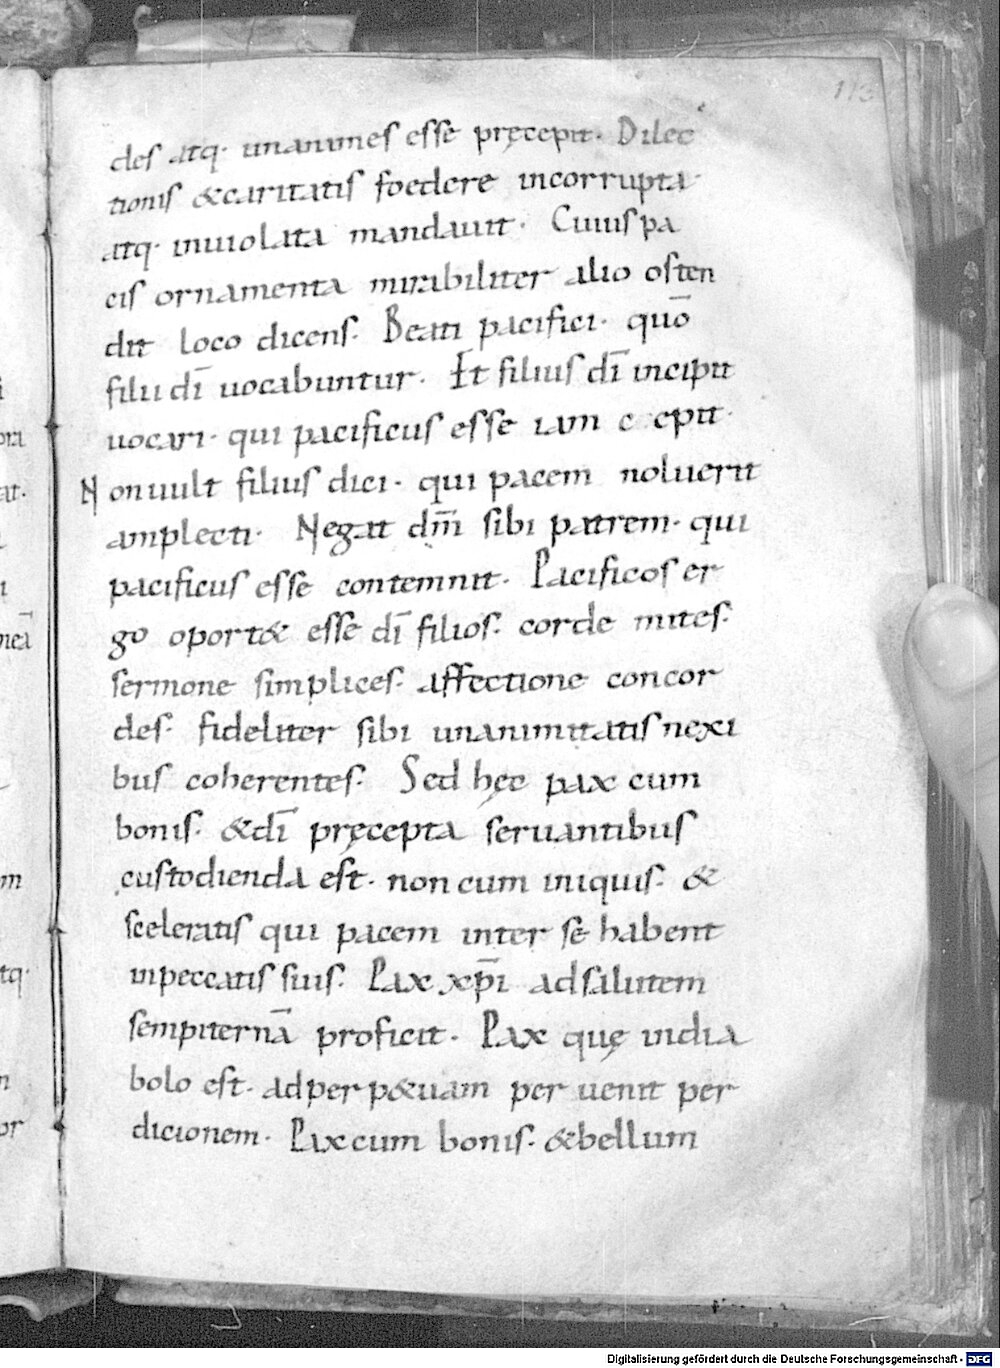 113
des atq· unanimes esse pręcepit. Dilec
tionis &caritatis foedere incorrupta·
atq· inuiolata mandauit· Cuius pa
cis ornamenta mirabiliter alio osten
dit loco dicens. Beati pacifici· quo̅
filii di̅ uocabuntur. Et filius di̅ incipit
uocari· qui pacificus esse iam c epit·
Non uult filius dici· qui pacem noluerit
amplecti· Negat dm̅ sibi patrem· qui
pacificus esse contemnit. Pacificos er
go oport& esse di̅ filios. corde mites.
sermone simplices. affectione concor
des. fideliter sibi unanimitatis nexi
bus coherentes. Sed hęc pax cum
bonis. &di̅ pręcepta seruantibus
custodienda est. non cum iniquis. &
sceleratis qui pacem inter se habent
inpeccatis suis. Pax xp̅i adsalutem
sempiterna̅ proficit. Pax quę india
bolo est. adperp&uam per uenit per
dicionem. Pax cum bonis. &bellum
Digitalisierung gefördert durch die Deutsche Forschungsgemeinschaft - DFG